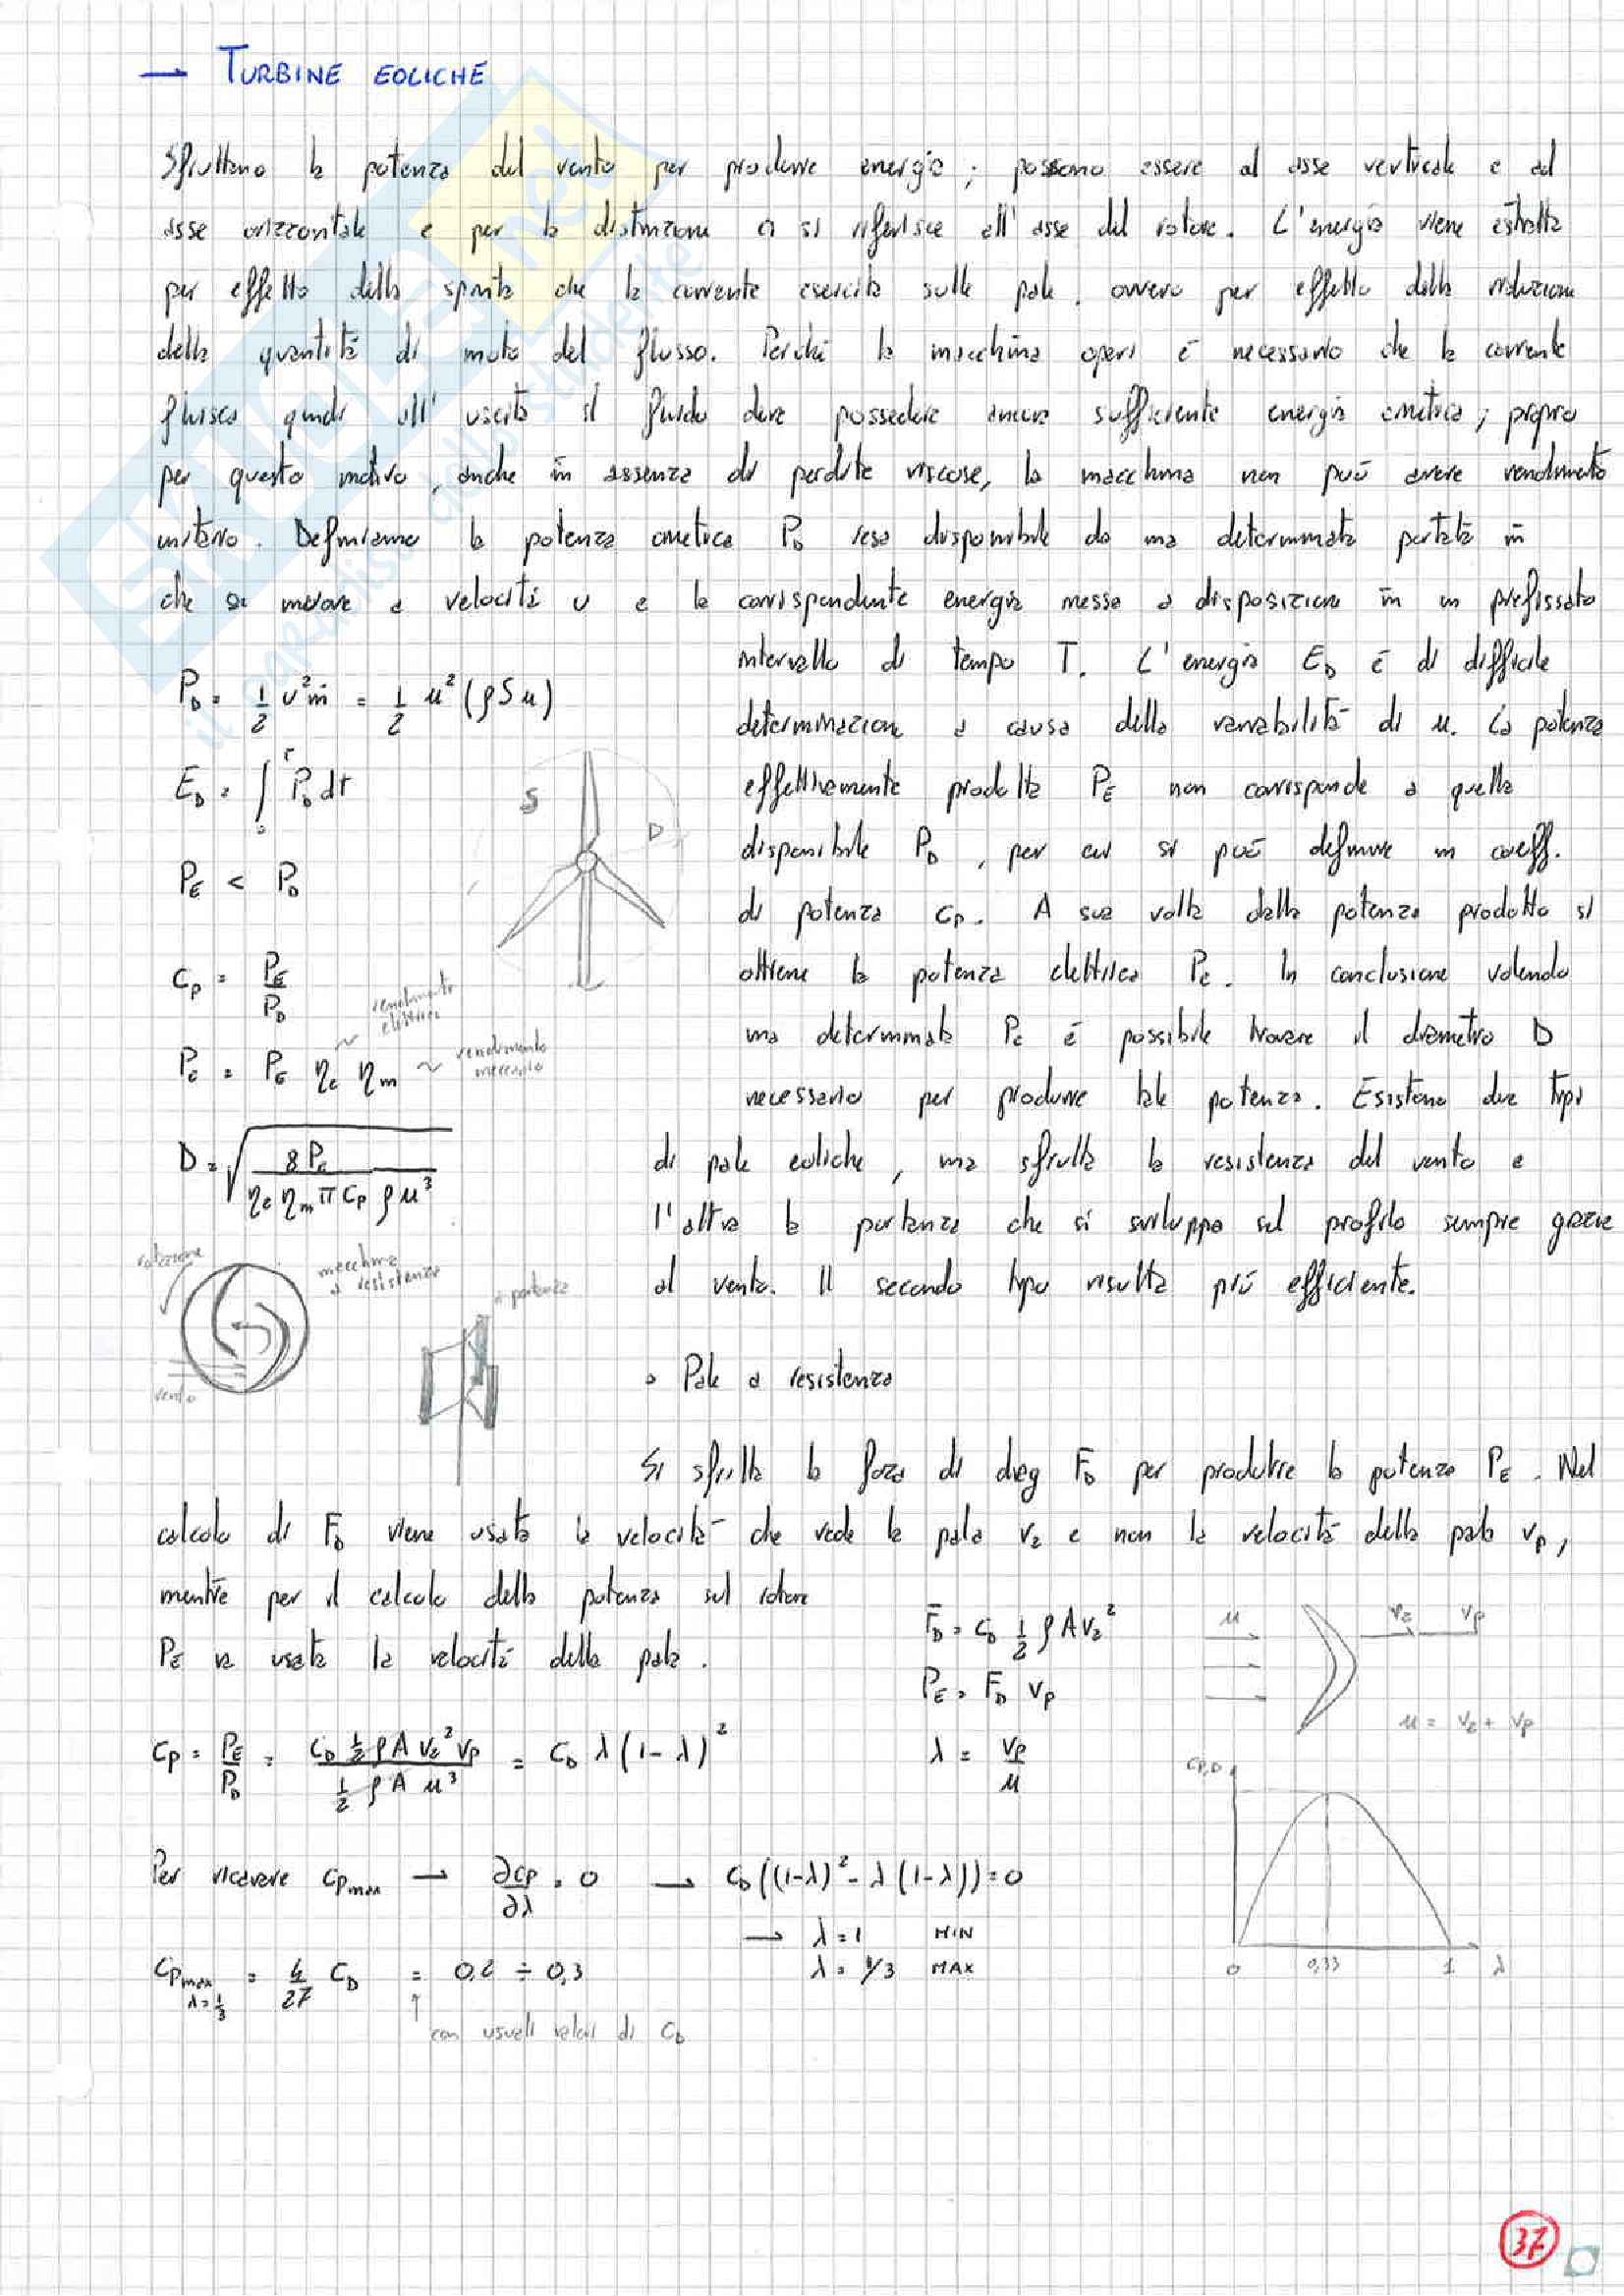 → TURBINE EOLICHE
Sfruttano la potenza del vento per produrre energia ; possono essere ad asse verticale e ad
asse orizzontale e per la distinzione ci si riferisce all' asse del rotore. L'energia viene estratta
per effetto della spinta che la corrente esercita sulle pale, ovvero per effetto della riduzione
della quantità di moto del flusso. Perché la macchina operi è necessario che la corrente
fluisca quindi all' uscita il fluido deve possedere ancora sufficiente energia cinetica ; proprio
per questo motivo, anche in assenza di perdite viscose, la macchina non può avere rendimento
unitario. Definiamo la potenza cinetica P_D resa disponibile da una determinata portata ṁ
che si muove a velocità u e la corrispondente energia messa a disposizione in un prefissato
intervallo di tempo T. L'energia E_D è di difficile
P_D = 1/2 u² ṁ = 1/2 u² (ρSu)
determinazione a causa della variabilità di u. La potenza
E_D = ∫₀ᵀ P_D dt
effettivamente prodotta P_E non corrisponde a quella
S
D
disponibile P_D , per cui si può definire un coeff.
P_E < P_D
di potenza c_P. A sua volta dalla potenza prodotta si
c_P = P_E / P_D
ottiene la potenza elettrica P_e. In conclusione volendo
~ rendimento elettrico
una determinata P_e è possibile trovare il diametro D
P_e = P_E η_e η_m ~ rendimento meccanico
necessario per produrre tale potenza. Esistono due tipi
D = √(8 P_e / (η_e η_m π c_P ρ u³))
di pale eoliche , una sfrutta la resistenza del vento e
l'altra la portanza che si sviluppa sul profilo sempre grazie
rotazione
macchina a resistenza
a portanza
al vento. Il secondo tipo risulta più efficiente.
vento
• Pale a resistenza
Si sfrutta la forza di drag F_D per produrre la potenza P_E . Nel
calcolo di F_D viene usata la velocità che vede la pala v_2 e non la velocità della pala v_P,
mentre per il calcolo della potenza sul rotore
P_E va usata la velocità della pala.
F_D = c_D 1/2 ρ A v_2²
P_E = F_D v_P
u v_2 v_P
u = v_2 + v_P
c_P = P_E / P_D = (c_D 1/2 ρ A v_2² v_P) / (1/2 ρ A u³) = c_D λ (1 - λ)²
λ = v_P / u
c_P,D
Per ricavare c_Pmax → ∂c_P/∂λ = 0 → c_D ((1-λ)² - λ (1-λ)) = 0
→ λ = 1 MIN
λ = 1/3 MAX
c_Pmax λ=1/3 = 4/27 c_D = 0,2 ÷ 0,3
0 0,33 1 λ
↑ con usuali valori di c_D
37